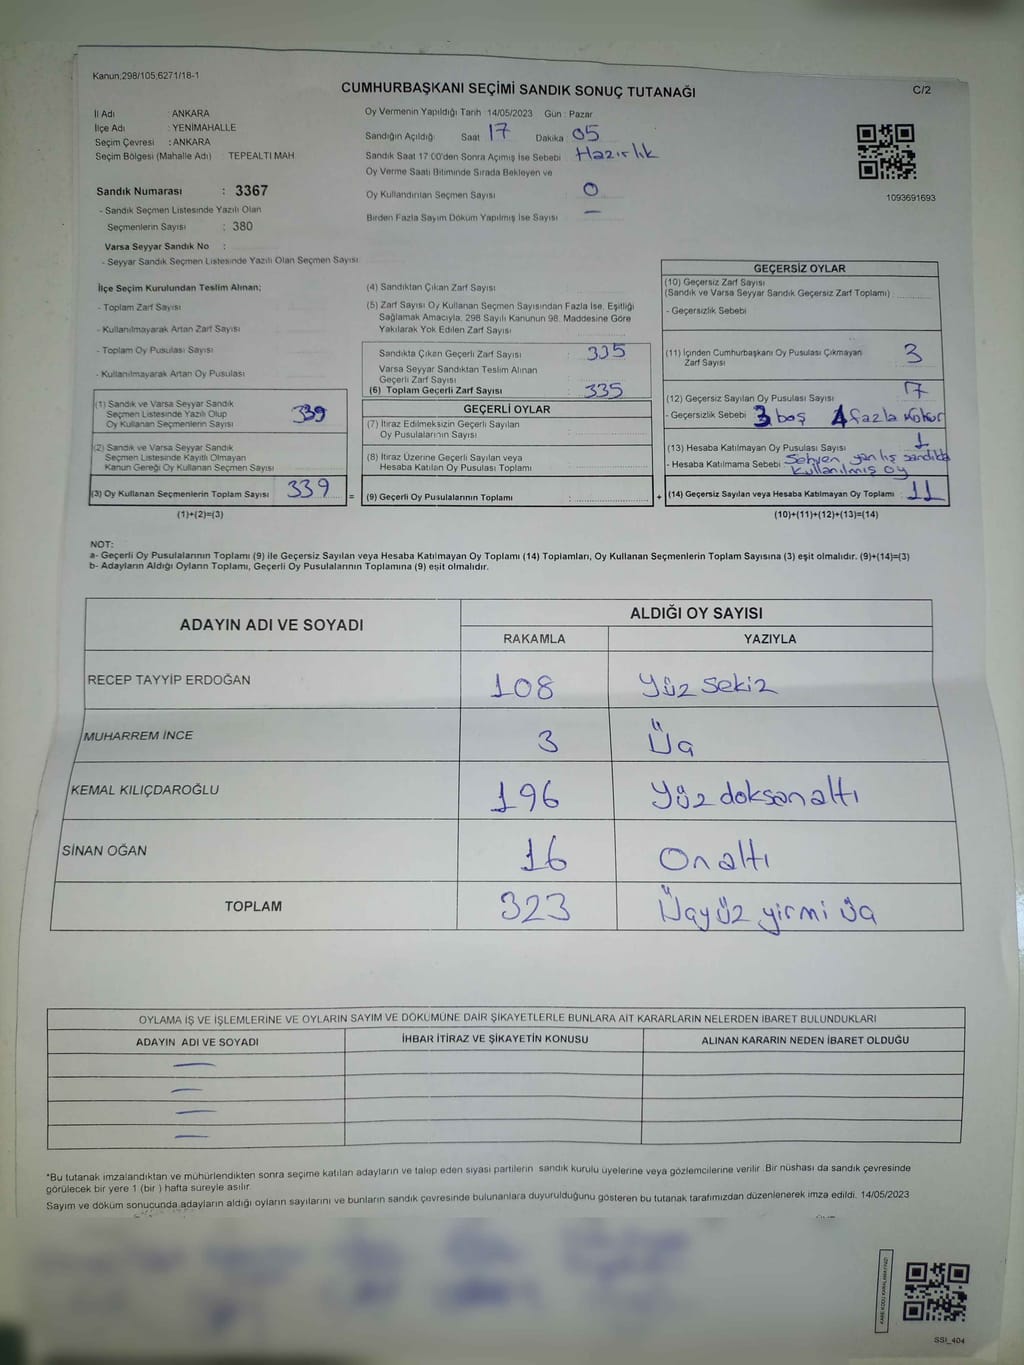 Kanun;298/105,6271/18-1
CUMHURBAŞKANI SEÇİMİ SANDIK SONUÇ TUTANAĞI
C/2
İl Adı : ANKARA
İlçe Adı : YENİMAHALLE
Seçim Çevresi : ANKARA
Seçim Bölgesi (Mahalle Adı) TEPEALTI MAH
Sandık Numarası : 3367
- Sandık Seçmen Listesinde Yazılı Olan
Seçmenlerin Sayısı : 380
Varsa Seyyar Sandık No :
- Seyyar Sandık Seçmen Listesinde Yazılı Olan Seçmen Sayısı
Oy Vermenin Yapıldığı Tarih 14/05/2023 Gün : Pazar
Sandığın Açıldığı Saat 17 Dakika 05
Sandık Saat 17 00'den Sonra Açımış İse Sebebi Hazırlık
Oy Verme Saati Bitiminde Sırada Bekleyen ve
Oy Kullandırılan Seçmen Sayısı 0
Birden Fazla Sayım Döküm Yapılmış İse Sayısı —
1093691693
İlçe Seçim Kurulundan Teslim Alınan;
- Toplam Zarf Sayısı
- Kullanılmayarak Artan Zarf Sayısı
- Toplam Oy Pusulası Sayısı
- Kullanılmayarak Artan Oy Pusulası
(1) Sandık ve Varsa Seyyar Sandık
Seçmen Listesinde Yazılı Olup
Oy Kullanan Seçmenlerin Sayısı 339
(2) Sandık ve Varsa Seyyar Sandık
Seçmen Listesinde Kayıtlı Olmayan
Kanun Gereği Oy Kullanan Seçmen Sayısı
(3) Oy Kullanan Seçmenlerin Toplam Sayısı 339 =
(1)+(2)=(3)
(4) Sandıktan Çıkan Zarf Sayısı
(5) Zarf Sayısı Oy Kullanan Seçmen Sayısından Fazla İse, Eşitliği
Sağlamak Amacıyla, 298 Sayılı Kanunun 98. Maddesine Göre
Yakılarak Yok Edilen Zarf Sayısı
Sandıkta Çıkan Geçerli Zarf Sayısı : 335
Varsa Seyyar Sandıktan Teslim Alınan
Geçerli Zarf Sayısı
(6) Toplam Geçerli Zarf Sayısı : 335
GEÇERLİ OYLAR
(7) İtiraz Edilmeksizin Geçerli Sayılan
Oy Pusulalarının Sayısı
(8) İtiraz Üzerine Geçerli Sayılan veya
Hesaba Katılan Oy Pusulası Toplamı
(9) Geçerli Oy Pusulalarının Toplamı : +
GEÇERSİZ OYLAR
(10) Geçersiz Zarf Sayısı
(Sandık ve Varsa Seyyar Sandık Geçersiz Zarf Toplamı)
- Geçersizlik Sebebi
(11) İçinden Cumhurbaşkanı Oy Pusulası Çıkmayan
Zarf Sayısı 3
(12) Geçersiz Sayılan Oy Pusulası Sayısı 7
- Geçersizlik Sebebi 3 boş 4 fazla
(13) Hesaba Katılmayan Oy Pusulası Sayısı 1
- Hesaba Katılmama Sebebi Sehven yanlış sandıkta
kullanılmış oy
(14) Geçersiz Sayılan veya Hesaba Katılmayan Oy Toplamı : 11
(10)+(11)+(12)+(13)=(14)
NOT:
a- Geçerli Oy Pusulalarının Toplamı (9) ile Geçersiz Sayılan veya Hesaba Katılmayan Oy Toplamı (14) Toplamları, Oy Kullanan Seçmenlerin Toplam Sayısına (3) eşit olmalıdır. (9)+(14)=(3)
b- Adayların Aldığı Oyların Toplamı, Geçerli Oy Pusulalarının Toplamına (9) eşit olmalıdır.
ADAYIN ADI VE SOYADI
ALDIĞI OY SAYISI
RAKAMLA YAZIYLA
RECEP TAYYİP ERDOĞAN 108 Yüz sekiz
MUHARREM İNCE 3 Üç
KEMAL KILIÇDAROĞLU 196 Yüz doksan altı
SİNAN OĞAN 16 On altı
TOPLAM 323 Üçyüz yirmi üç
OYLAMA İŞ VE İŞLEMLERİNE VE OYLARIN SAYIM VE DÖKÜMÜNE DAİR ŞİKAYETLERLE BUNLARA AİT KARARLARIN NELERDEN İBARET BULUNDUKLARI
ADAYIN ADI VE SOYADI İHBAR İTİRAZ VE ŞİKAYETİN KONUSU ALINAN KARARIN NEDEN İBARET OLDUĞU
—
—
—
—
*Bu tutanak imzalandıktan ve mühürlendikten sonra seçime katılan adayların ve talep eden siyasi partilerin sandık kurulu üyelerine veya gözlemcilerine verilir. Bir nüshası da sandık çevresinde
görülecek bir yere 1 (bir ) hafta süreyle asılır.
Sayım ve döküm sonucunda adayların aldığı oyların sayılarını ve bunların sandık çevresinde bulunanlara duyurulduğunu gösteren bu tutanak tarafımızdan düzenlenerek imza edildi. 14/05/2023
SSI_404